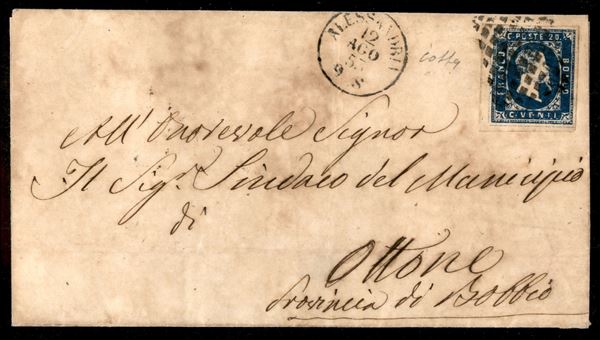 ALESSANDRIA
12
AGO
9 S
C. POSTE 20.
FRANCO
BOLLO
C. VENTI
All' Onorevole Signor
Il Sigr. Sindaco del Municipio
di
Ottone
Provincia di Bobbio